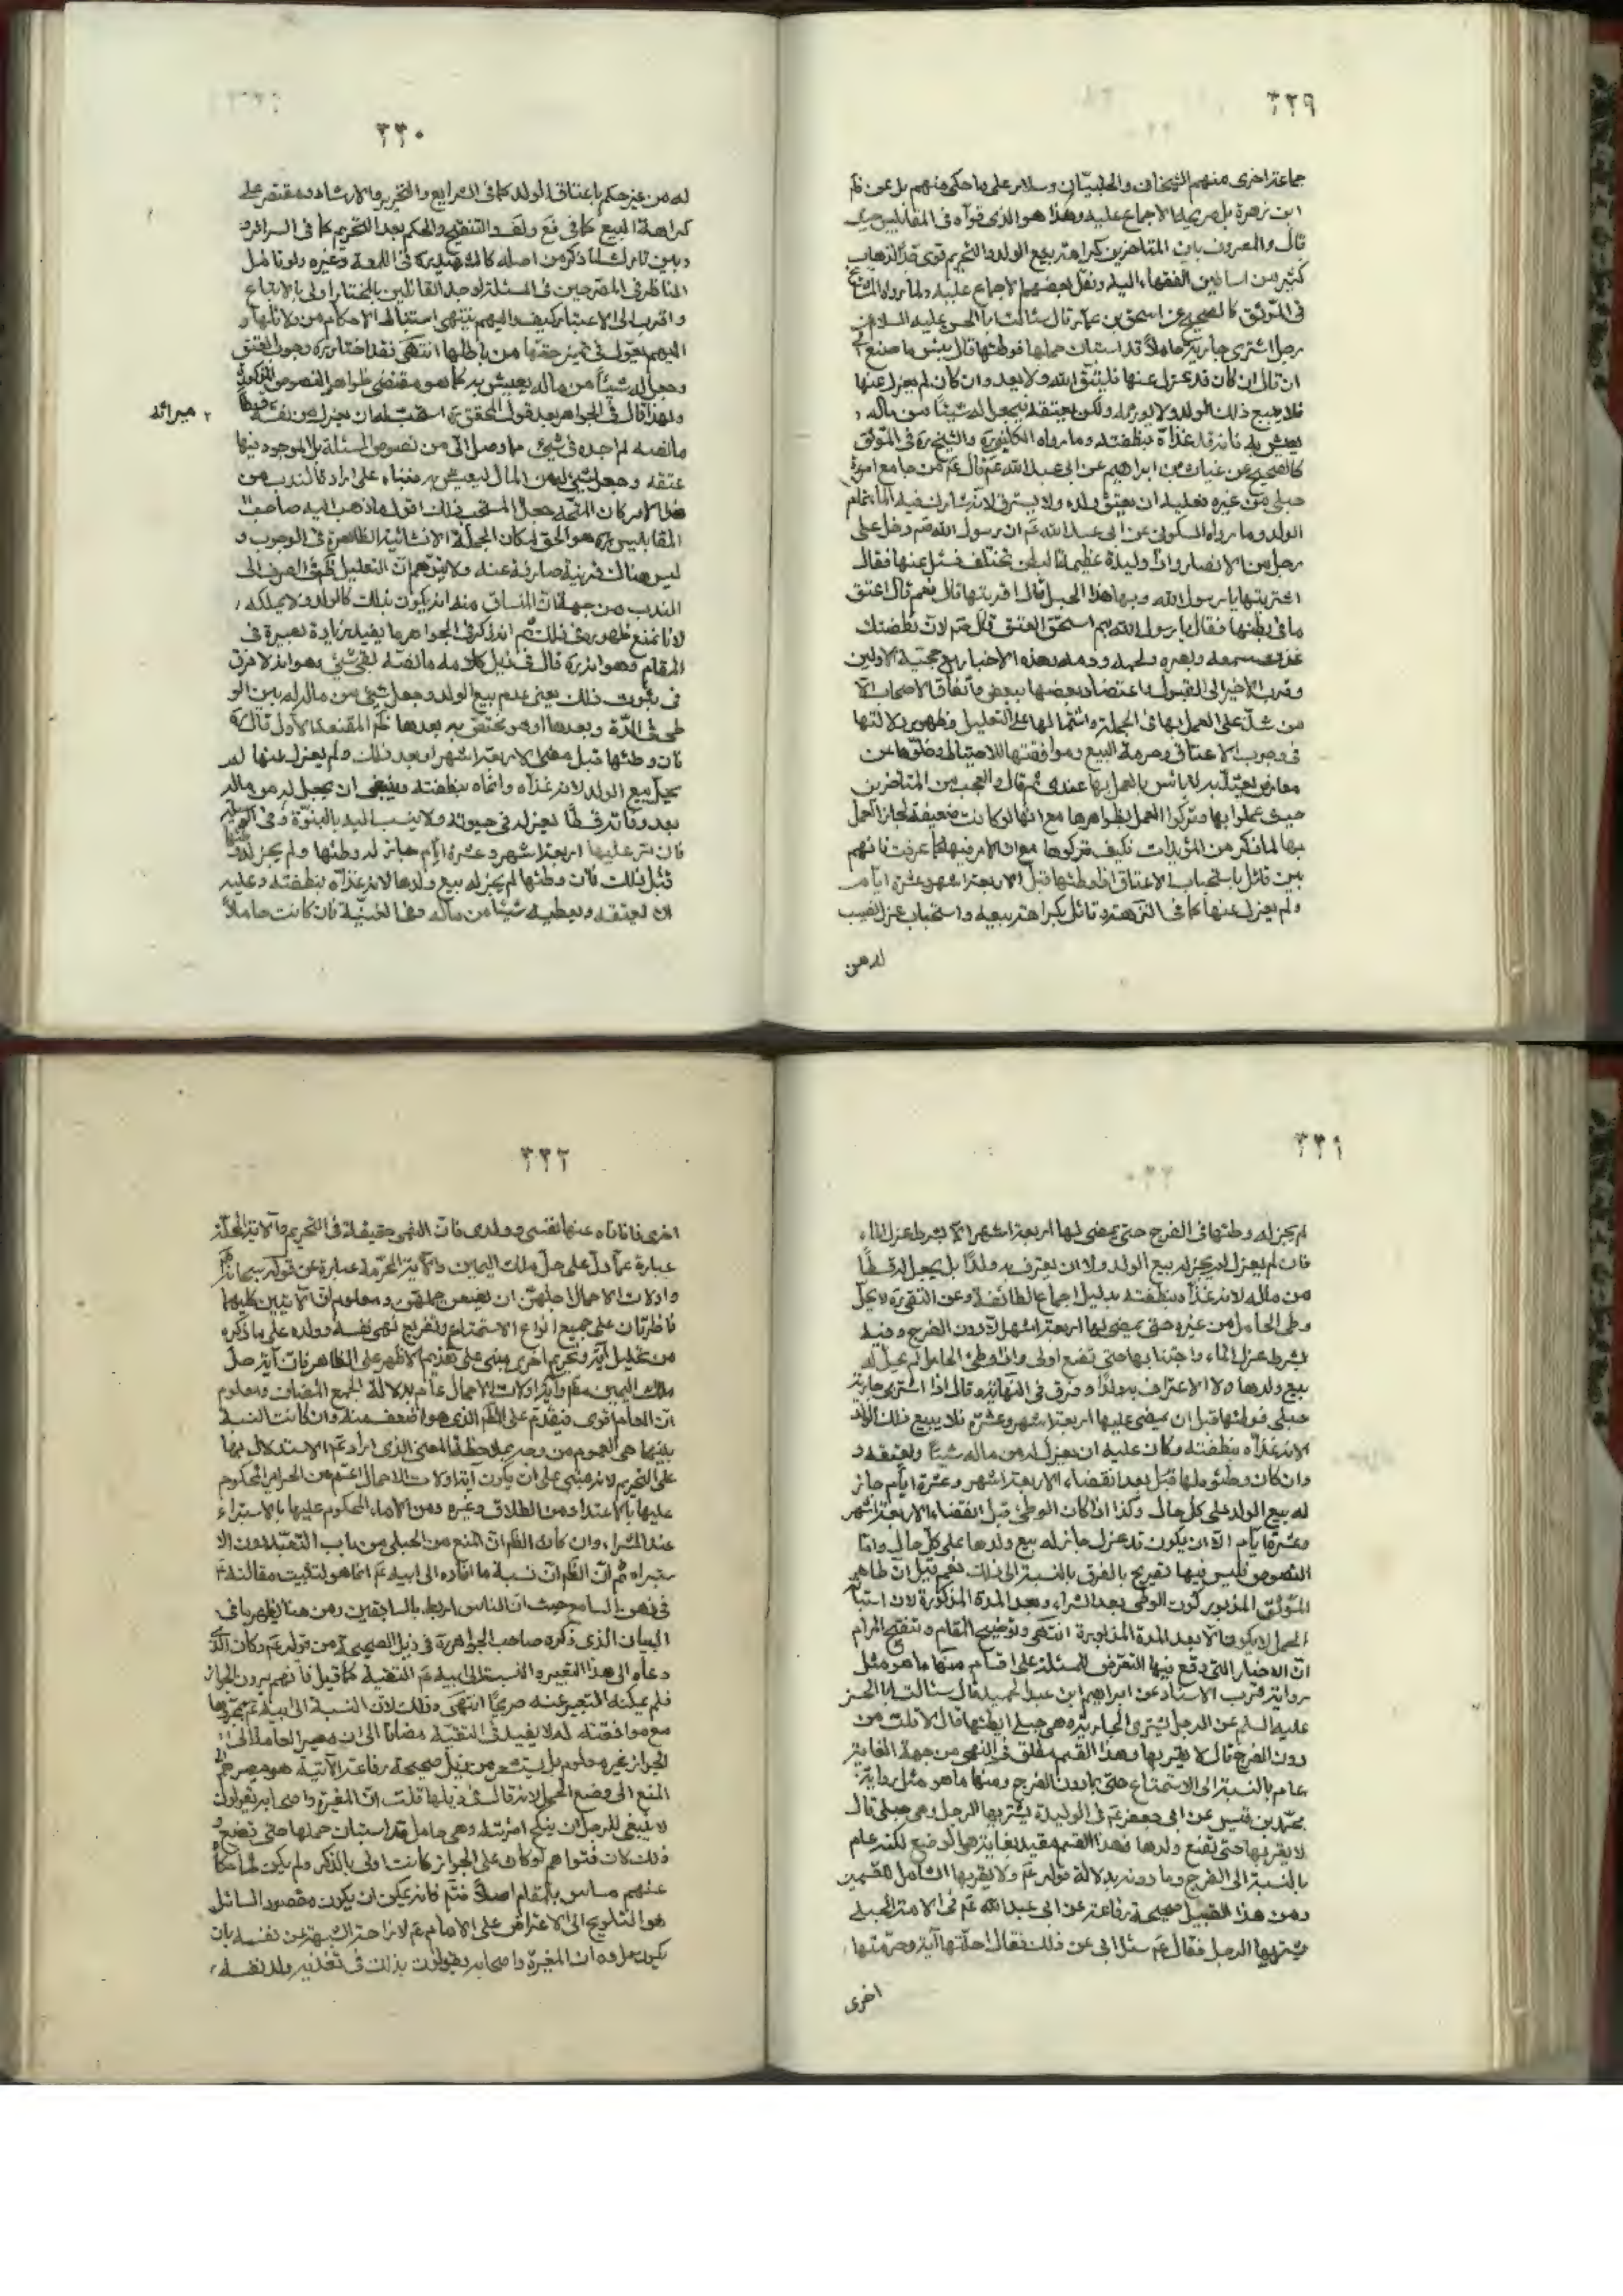 ٣٢٩
جماعة اخرى منهم الشيخان والحلبيّان وسلار على ما حكى عنهم بل عن
ابن زهرة بل صريحها الاجماع عليه وهذا هو الذى قوّاه فى المقابيس حيث
قال والمعروف بين المتاخرين كراهة بيع الولد والتحريم قوى فقد ذهب
كثير من اساطين الفقهاء اليه ونقل بعضهم الاجماع عليه ولما رواه المشايخ
فى الموثق كالصحيح عن اسحق بن عمار قال سئالت ابا الحسن عليه السلام عن
رجل اشترى جارية حاملاً قد استبان حملها فوطئها قال بئس ما صنع
ان قال ان كان قد عزل عنها فليتّق الله ولا يعد وان كان لم يعزل عنها
فلا يبيع ذلك الولد ولا يورثه ولكن يعتقه ويجعل له شيئا من ماله
يعيش به فانه قد غذّاه بنطفته وما رواه الكلينى ره والشيخ ره فى الموثق
كالصحيح عن غياث بن ابراهيم عن ابى عبد الله عم قال عم من جامع امة
حبلى من غيره فعليه ان يعتق ولده ولا يسترق لانه شارك فيه الماء تمام
الولد وما رواه السكونى عن ابى عبد الله عم ان رسول الله ص دخل على
رجل من الانصار واذا وليدة عظيمة البطن تختلف فسئل عنها فقال
اشتريتها يا رسول الله وبها هذا الحبل قال اقربتها قال نعم قال اعتق
ما فى بطنها فقال يا رسول الله بم استحق العتق قال عم لان نطفتك
غذت سمعه وبصره ولحمه ودمه وهذه الاخبار مع حجية الاولين
وقرب الاخير الى القبول واعتضاد بعضها ببعض واتفاق الاصحاب الّا
من شذّ على العمل بها فى الجملة واشتمالها على التعليل وظهور دلالتها
فى وجوب الاعتاق وحرمة البيع وموافقتها للاحتياط وخلوّها عن
معارض يعتدّ به لا باس بالعمل بها عندى ثم قال والعجب من المتاخرين
حيث عملوا بها وتركوا العمل بظواهرها مع انها لو كانت ضعيفة لجاز العمل
بها لما ذكر من المؤيدات فكيف تركوها مع ان الامر فيها كما عرفت فانهم
بين قائل باستحباب الاعتاق اذا وطئها قبل الاربعة اشهر وعشرة ايام
ولم يعزل عنها كما فى النزهة وقائل بكراهة بيعه واستحباب عزل نصيب
له من
٣٣٠
له من غير حكم باعتاق الولد كما فى الشرايع والتحرير والارشاد ومقتصر على
كراهة البيع كما فى فع ولعد التنقيح والحكم بعد التحريم كما فى السرائر
وبين تارك لما ذكر من اصله كالشهيد ره فى اللمعة وغيره ولو تامل
الناظر فى المصرحين فى المسئلة لوجد القائلين بالمختار اولى بالاتباع
واقرب الى الاعتبار كيف واليهم ينتهى استنباط الاحكام من دلائلها و
اليهم يعوّل فى تمييز حقها من باطلها انتهى فقد اختار ره وجوب العتق
وجعل له شيئاً من ماله يعيش به كما هو مقتضى ظواهر النصوص المذكورة
ولهذا قال فى الجواهر بعد قول المحقق ره استحب له ان يعزل له من ميراثه قسطاً
ما لفظه لم اجده فى شىء مما وصل الىّ من نصوص المسئلة بل الموجود فيها
عتقه وجعل شىء له من المال ليعيش به فبناء على ارادة الندب من
هذا الامر كان المتجه جعل المستحب ذلك اقول ما ذهب اليه صاحب
المقابيس ره هو الحق لمكان الجملة الانشائية الظاهرة فى الوجوب و
ليس هناك قرينة صارفة عنه ولا يتوهم ان التعليل ظ فى الصرف الى
الندب من جهة ان المنساق منه انه يكون بذلك كالولد ولا يملكه
لانا نمنع ظهوره فى ذلك ثم انه ذكر فى الجواهر ما يفيد زيادة بصيرة فى
المقام وهو انه ره قال فى ذيل كلامه ما لفظه بقى شىء وهو انه لا فرق
فى ثبوت ذلك يعنى عدم بيع الولد وجعل شىء من ماله له بين الو
طى فى المدّة وبعدها او هو مختص به بعدها ظ المقنعة الاول قال ره
فان وطئها قبل مضى الاربعة اشهر او بعد ذلك ولم يعزل عنها لم
يحل بيع الولد لانه غذّاه وانماه بنطفته وينبغى ان يجعل له من ماله
بعد وفاته قسطاً يعزله فى حيوته ولا ينسب اليه بالبنوّة وفى الوسيلة
فان مر عليها اربعة اشهر وعشرة ايام جاز له وطئها ولم يجز له وطئها
قبل ذلك فان وطئها لم يجز له بيع ولدها لانه غذّاه بنطفته وعليه
ان يعتقه ويعطيه شيئا من ماله وفى الغنية فان كانت حاملاً
٣٣١
لم يجز له وطئها فى الفرج حتى يمضى لها اربعة اشهر الّا بشرط عزل الماء
فان لم يعزل لم يجز له بيع الولد ولا ان يعترف به ولداً بل يجعل له قسطاً
من ماله لانه غذاه بنطفته بدليل اجماع الطائفة وعن التقى ره لا يحل
وطى الحامل من غيره حتى يمضى لها اربعة اشهر الّا دون الفرج وفيه
بشرط عزل الماء واجتنابها حتى تضع اولى واذا وطئ الحامل لم يحل له
بيع ولدها ولا الاعتراف به ولداً وفرق فى النهاية وقال اذا اشترى جارية
حبلى فوطئها قبل ان يمضى عليها اربعة اشهر وعشرة فلا يبيع ذلك الولد
لانه غذّاه بنطفته وكان عليه ان يعزل له من ماله شيئاً ويعتقه و
وان كان وطئه لها قبل بعد انقضاء الاربعة اشهر وعشرة ايام جاز
له بيع الولد على كل حال وكذا اذا كان الوطى قبل انقضاء الاربعة اشهر
وعشرة ايام الّا ان يكون قد عزل جاز له بيع ولدها على كل حال وامّا
النصوص فليس فيها تصريح بالفرق بالنسبة الى ذلك نعم قيل ان ظاهر
الموثق المزبور كون الوطى بعد الشراء وبعد المدة المذكورة لان استبا
الحمل لا يكون الّا بعد المدة المزبورة انتهى وتوضيح المقام وتنقيح المرام
ان الاخبار التى وقع فيها التعرض للمسئلة على اقسام منها ما هو مثل
رواية قرب الاسناد عن ابراهيم ابن عبد الحميد قال سئالت ابا الحسن
عليه السلم عن الرجل يشترى الجارية وهى حبلى ايطئها قال لا قلت من
دون الفرج قال لا يقربها وهذا القسم مطلق فى النهى من جهة الغاية
عام بالنسبة الى الاستمتاع حتى بما دون الفرج ومنها ما هو مثل رواية
محمد بن قيس عن ابى جعفر عم فى الوليدة يشتريها الرجل وهى حبلى قال
لا يقربها حتى تضع ولدها فهذا القسم مقيد بغاية هى الوضع لكنه عام
بالنسبة الى الفرج وما دونه بدلالة قوله عم ولا يقربها الشامل للقسمين
ومن هذا القبيل صحيحة رفاعة عن ابى عبد الله عم فى الامة الحبلى
يشتريها الرجل فقال عم سئل ابى عن ذلك فقال احلتها آية وحرّمتها
اخرى
٣٣٢
اخرى فانا ناه عنها نفسى وولدى فان النهى حقيقة فى التحريم والآية المحلّلة
عبارة عمّا دل على حل ملك اليمين والآية المحرّمة عبارة عن قوله سبحانه
واولات الاحمال اجلهن ان يضعن حملهن ومعلوم ان الآيتين كليهما
ناظرتان على جميع انواع الاستمتاع وتفريع نهى نفسه وولده على ما ذكره
من تحليل آية وتحريم اخرى مبنى على تقديم الاظهر على الظاهر فان آية حل
ملك اليمين وآية اولات الاحمال عام بدلالة الجمع المضاف ومعلوم
ان العام اقوى فيقدم على الظم الذى هو اضعف منه وان كانت النسبة
بينهما هى العموم من وجه بملاحظة المعنى الذى اراد عم الاستدلال بها
على التحريم لانه مبنى على ان يكون آية اولات الاحمال اعم من الحراير المحكوم
عليها بالاعتداد من الطلاق وغيره ومن الاماء المحكوم عليها بالاستبراء
عند الشراء وان كان الظم ان المنع من الحبلى من باب التعبّد دون الا
ستبراء ثم ان الظم ان نسبة ما افاده الى ابيه عم انما هو لتثبيت مقالته
فى ذهن السامع حيث ان الناس اربط بالسابقين ومن هنا يظهر ما فى
البيان الذى ذكره صاحب الجواهر ره فى ذيل الصحيحة من قوله عم وكان الذى
دعاه الى هذا التعبير والنسبة الى ابيه عم التقية كما قيل فانهم يرون الجواز
فلم يمكنه التعبير عنه صريحاً انتهى وذلك لان النسبة الى ابيه عم بمجردها
مع موافقته له لا يفيد فى التقية مضافا الى ان مصير العامة الى
الجواز غير معلوم بل يستشعر من ذيل صحيحة رفاعة الآتية هو مصيرهم الى
المنع الى وضع الحمل لانه قال فى ذيلها قلت ان المغيرة واصحابه يقولون
لا ينبغى للرجل ان ينكح امرئته وهى حامل قد استبان حملها حتى تضع و
ذلك لان فتواهم لو كان على الجواز كانت اولى بالذكر ولم يكن لما حكاه
عنهم مساس بالمقام اصلاً فتم فانه يمكن ان يكون مقصود السائل
هو التلويح الى الاعتراض على الامام عم لا زاحة الشبهة عن نفسه بان
يكون مراده ان المغيرة واصحابه يقولون بذلك فى تغذيه ولد نفسه